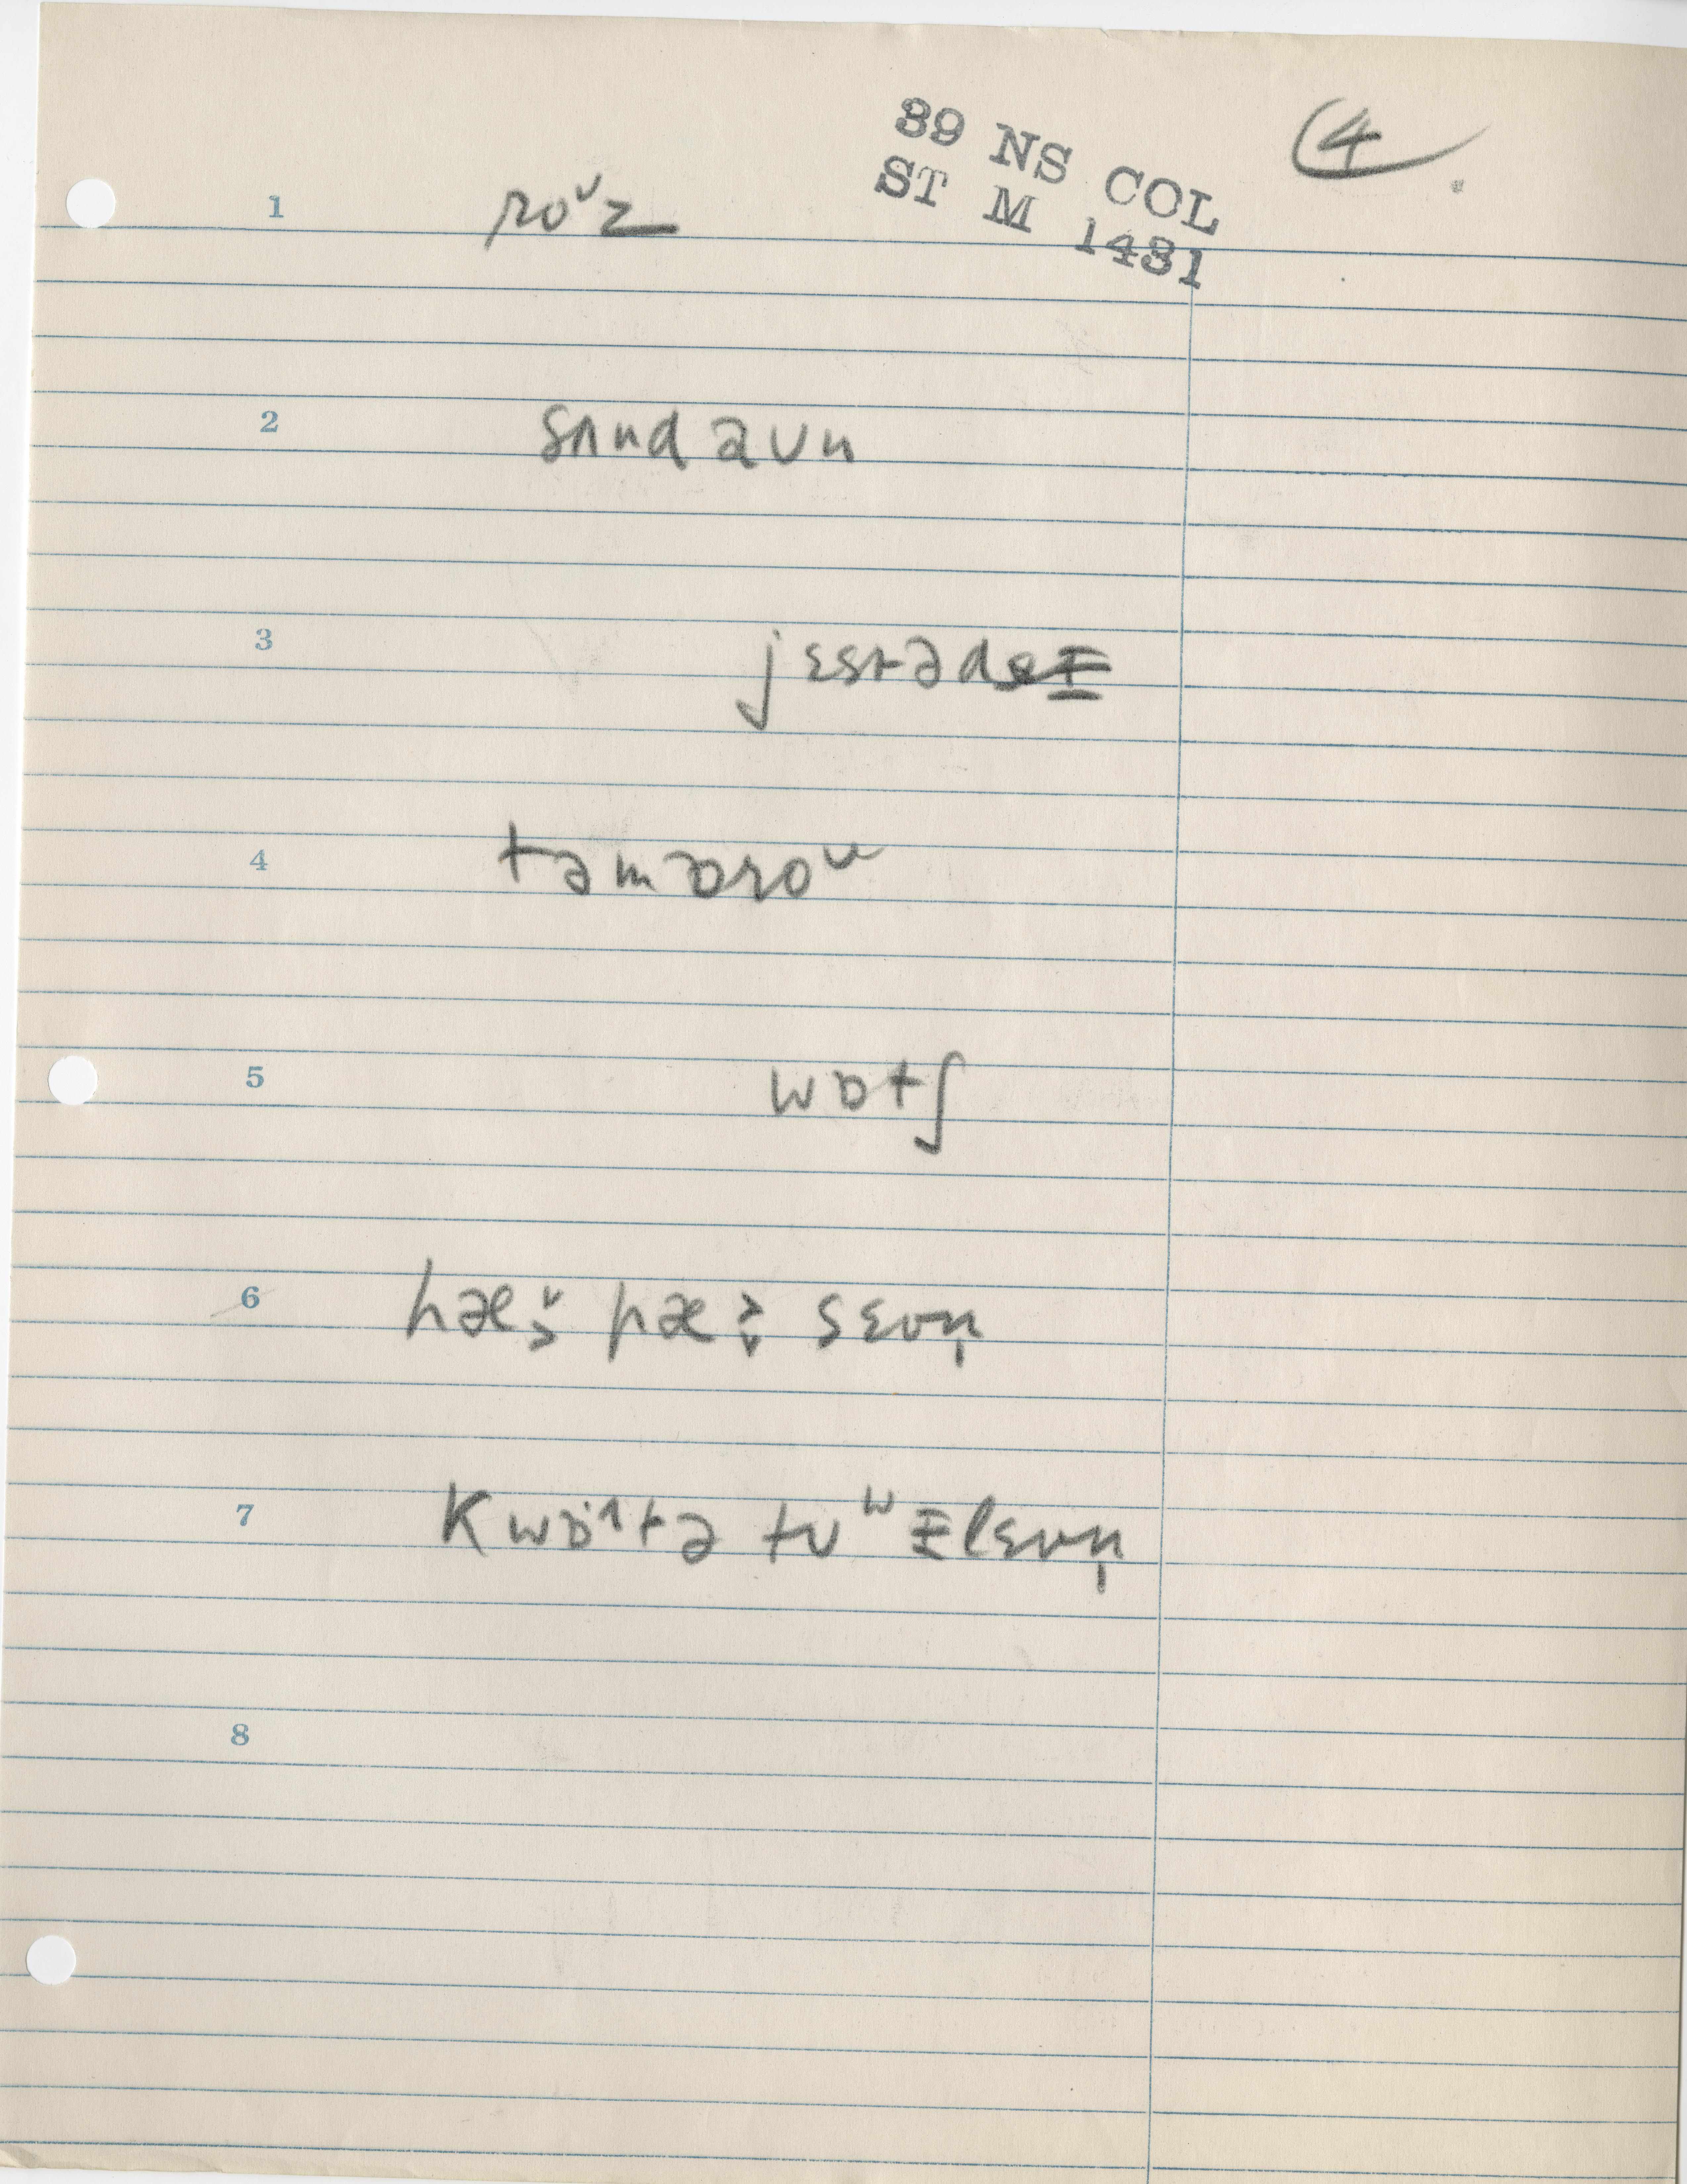 39 NS COL
ST M 1431
4
1 roᶸz
2 sʌndaʊn
3 jɛstəde
4 təmɒroᶸ
5 wɒtʃ
6 hæˑᵊ pæˑᵊ sɛvn̩
7 kwɒˑᶺtə tʊʷ ɪlɛvn̩
8